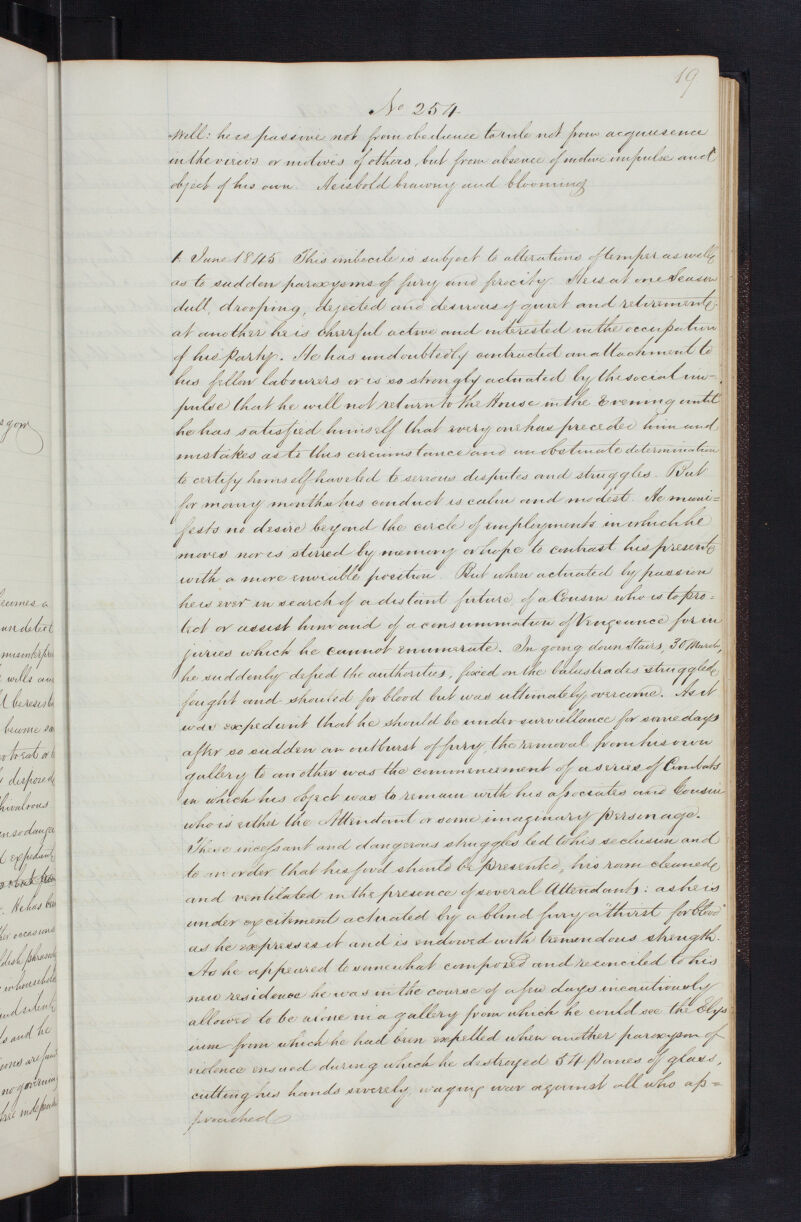 19
No 254
Will: he is passive not from obedience to rule not from acquiesence
in the views or motives of others, but from absence of motive impulse and
object of his own. He is bold brawny and blooming
1. June 1845 This imbecile is subject to alterations of temper as well
as to sudden paroxysms of fury and ferocity. He is at one Season
dull, drooping, dejected and desirous of quiet and retirement,
at another he is cheerful active and interested in the occupation
of his Party. He has undoubtedly contracted an attachment to
his fellow labourers or is so strongly actuated by the social im=
pulse that he will not return to the House in the Evening until
he has satisfied himself that every one has preceded him and
mistakes as to this circumstance and an obstinate determination
to certify himself have led to serious disputes and struggles. But
for many months his conduct is calm and modest. He mani=
fests no desire beyond the circle of employments in which he
moves nor is stirred by memory or hope to contrast his present
with a more enviable position. But when actuated by passion
he is ever in search of a distant future, of a Cousin who is to pro=
tect or assist him and of a consummation of Vengeance for in
juries which he cannot enumerate. In going down Stairs, 30 March,
he suddenly defied the authorities, fixed on the balustrades struggled,
fought and shouted for blood but was ultimately overcome. As it
was expedient that he should be under surveillance for some days
after so sudden an outburst of fury, the removal from his own
gallery to another was the commencement of a series of Combats
in which his object was to remain with his associates and Cousin
who is either the Attendant or some imaginary personage.
These incessant and dangerous struggles led to his seclusion and
to an order that his food should be presented, his room cleaned,
and ventilated in the presence of several Attendants: as he is
under excitement actuated by a blind fury a "thirst for blood"
as he expresses it and is endowed with tremendous strength.
As he appeared to somewhat composed and reconciled to his
new residence he was in the course of a few days incautiously
allowed to be alone in a gallery from which he could see the Elys
ium from which he had been expelled when another paroxysm of
violence ensued during which he destroyed 54 panes of glass,
cutting his hands severely, waging war against all who ap=
proached